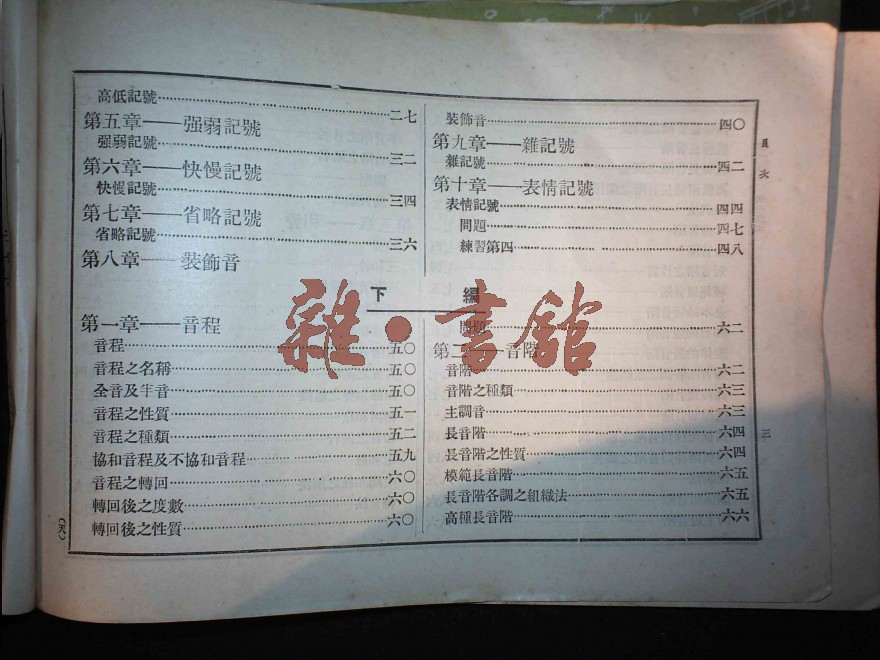 高低記號……二七
第五章——强弱記號
强弱記號……三二
第六章——快慢記號
快慢記號……三四
第七章——省略記號
省略記號……三六
第八章——裝飾音
裝飾音……四〇
第九章——雜記號
雜記號……四二
第十章——表情記號
表情記號……四四
問題……四七
練習第四……四八
下編
第一章——音程
音程……五〇
音程之名稱……五〇
全音及半音……五〇
音程之性質……五一
音程之種類……五二
協和音程及不協和音程……五九
音程之轉回……六〇
轉回後之度數……六〇
轉回後之性質……六〇
問題……六二
第二章——音階
音階……六二
音階之種類……六三
主調音……六三
長音階……六四
長音階之性質……六四
模範長音階……六五
長音階各調之組織法……六五
高種長音階……六六
目次
三
雜·書館